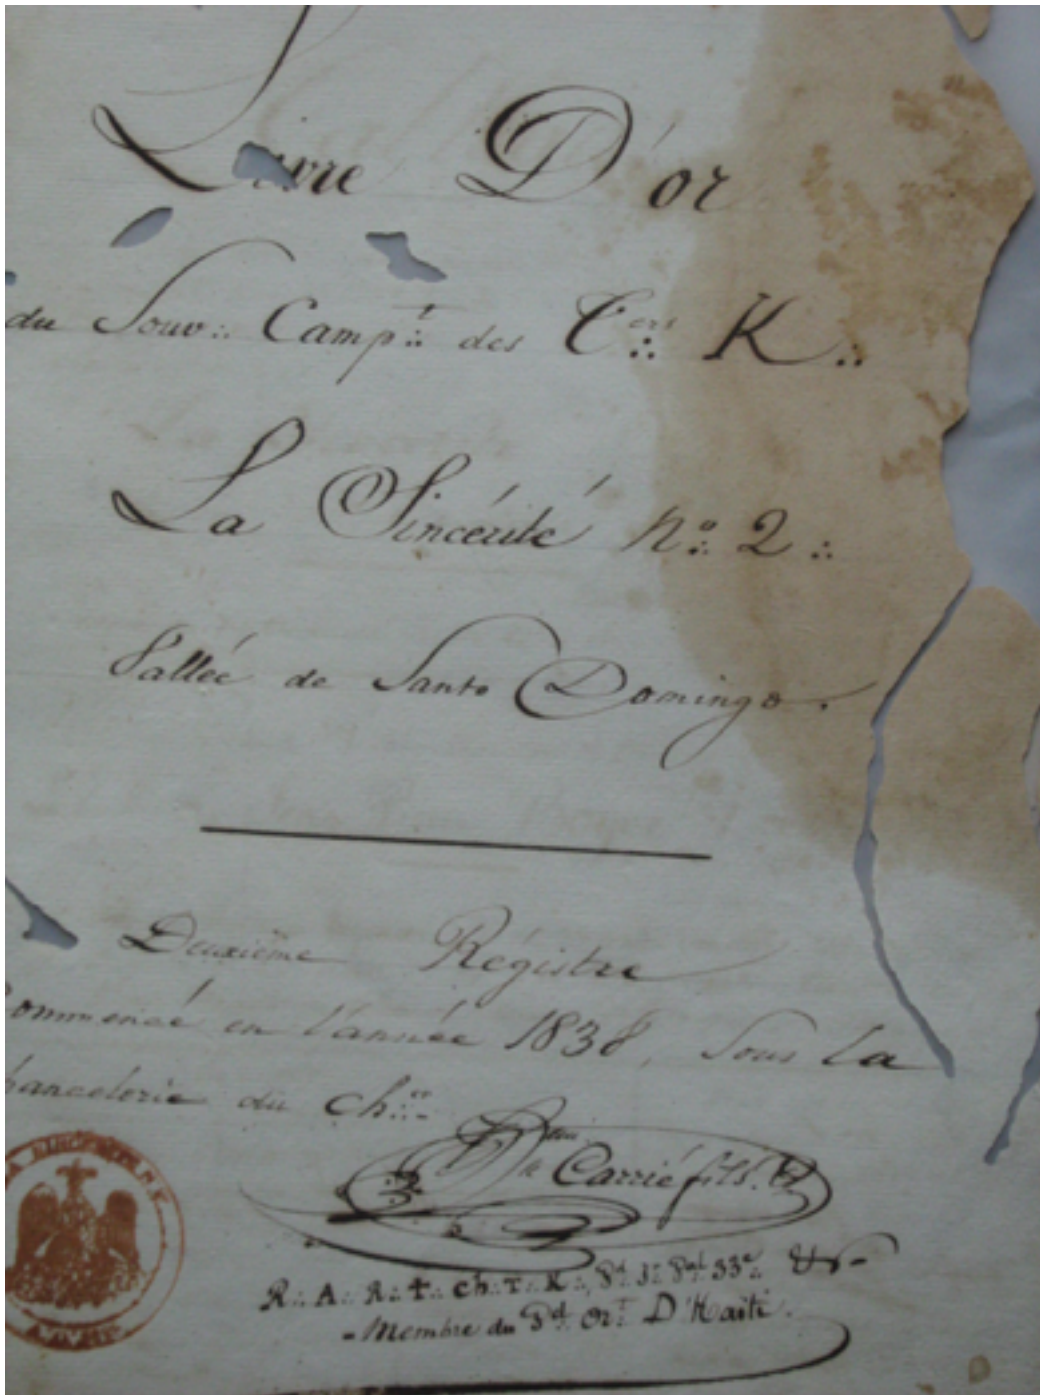 Livre D'or
du Souv∴ Camp.t∴ des C.ers∴ K∴
La Sincérité No∴ 2∴
Vallée de Santo Domingo.
Deuxième Régistre
Commencé en l'année 1838, sous la
Chancelerie du Ch∴er
Carrié fils.
R∴ A∴ R∴ †∴ Ch∴ T∴ K∴, 33e∴ &
- Membre du Gd∴ Or∴t D'Haïti.
LA SINCERITE